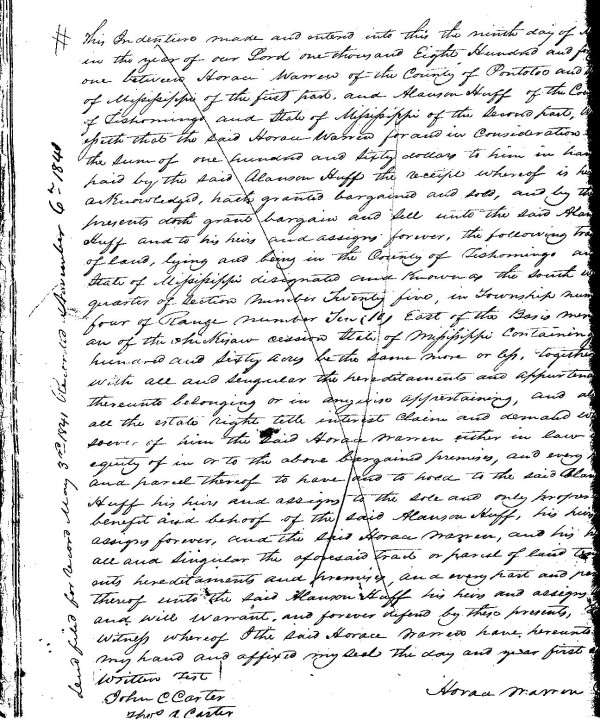 This Indenture made and entered into this the ninth day of
in the year of our Lord one thousand Eight Hundred and
one between Horace Warren of the County of Pontotoc and
of Mississippi of the first part, and Alanson Huff of the
of Tishomingo and State of Mississippi of the second part,
esseth that the said Horace Warren for and in Consideration
the sum of one hundred and sixty dollars to him in
paid by the said Alanson Huff the receipt whereof is
acknowledged, hath granted bargained and sold, and by
presents doth grant bargain and sell unto the said
Huff and to his heirs and assigns forever, the following
of land, lying and being in the County of Tishomingo
State of Mississippi designated and Known as the South
quarter of section number Twenty five, in Township
four of Range number Ten (10) East of the Basis
an of the chickisaw cession State of Mississippi Containing
hundred and sixty acres be the same more or less, together
with all and singular the hereditaments and
thereunto belonging or in anywise appertaining, and
all the estate right title interest Claim and demand
soever of him the said Horace Warren either in law
equity of in or to the above bargained premises, and every
and parcel thereof to have and to hold to the said
Huff his heirs and assigns to the sole and only proper
benefit and behoof of the said Alanson Huff, his heirs
assigns forever, and the said Horace Warren, and his
all and singular the aforesaid tract or parcel of land
ents hereditaments and premises, and every part and
thereof unto the said Alanson Huff his heirs and assigns
and will Warrant, and forever defend by these presents,
Witness whereof I the said Horace Warren have hereunto
my hand and affixed my seal the day and year first
Written Test
John C Carter
Thos A Carter
Horace Warren
Deed filed for record May 3rd 1841 Recorded November 6th 1841